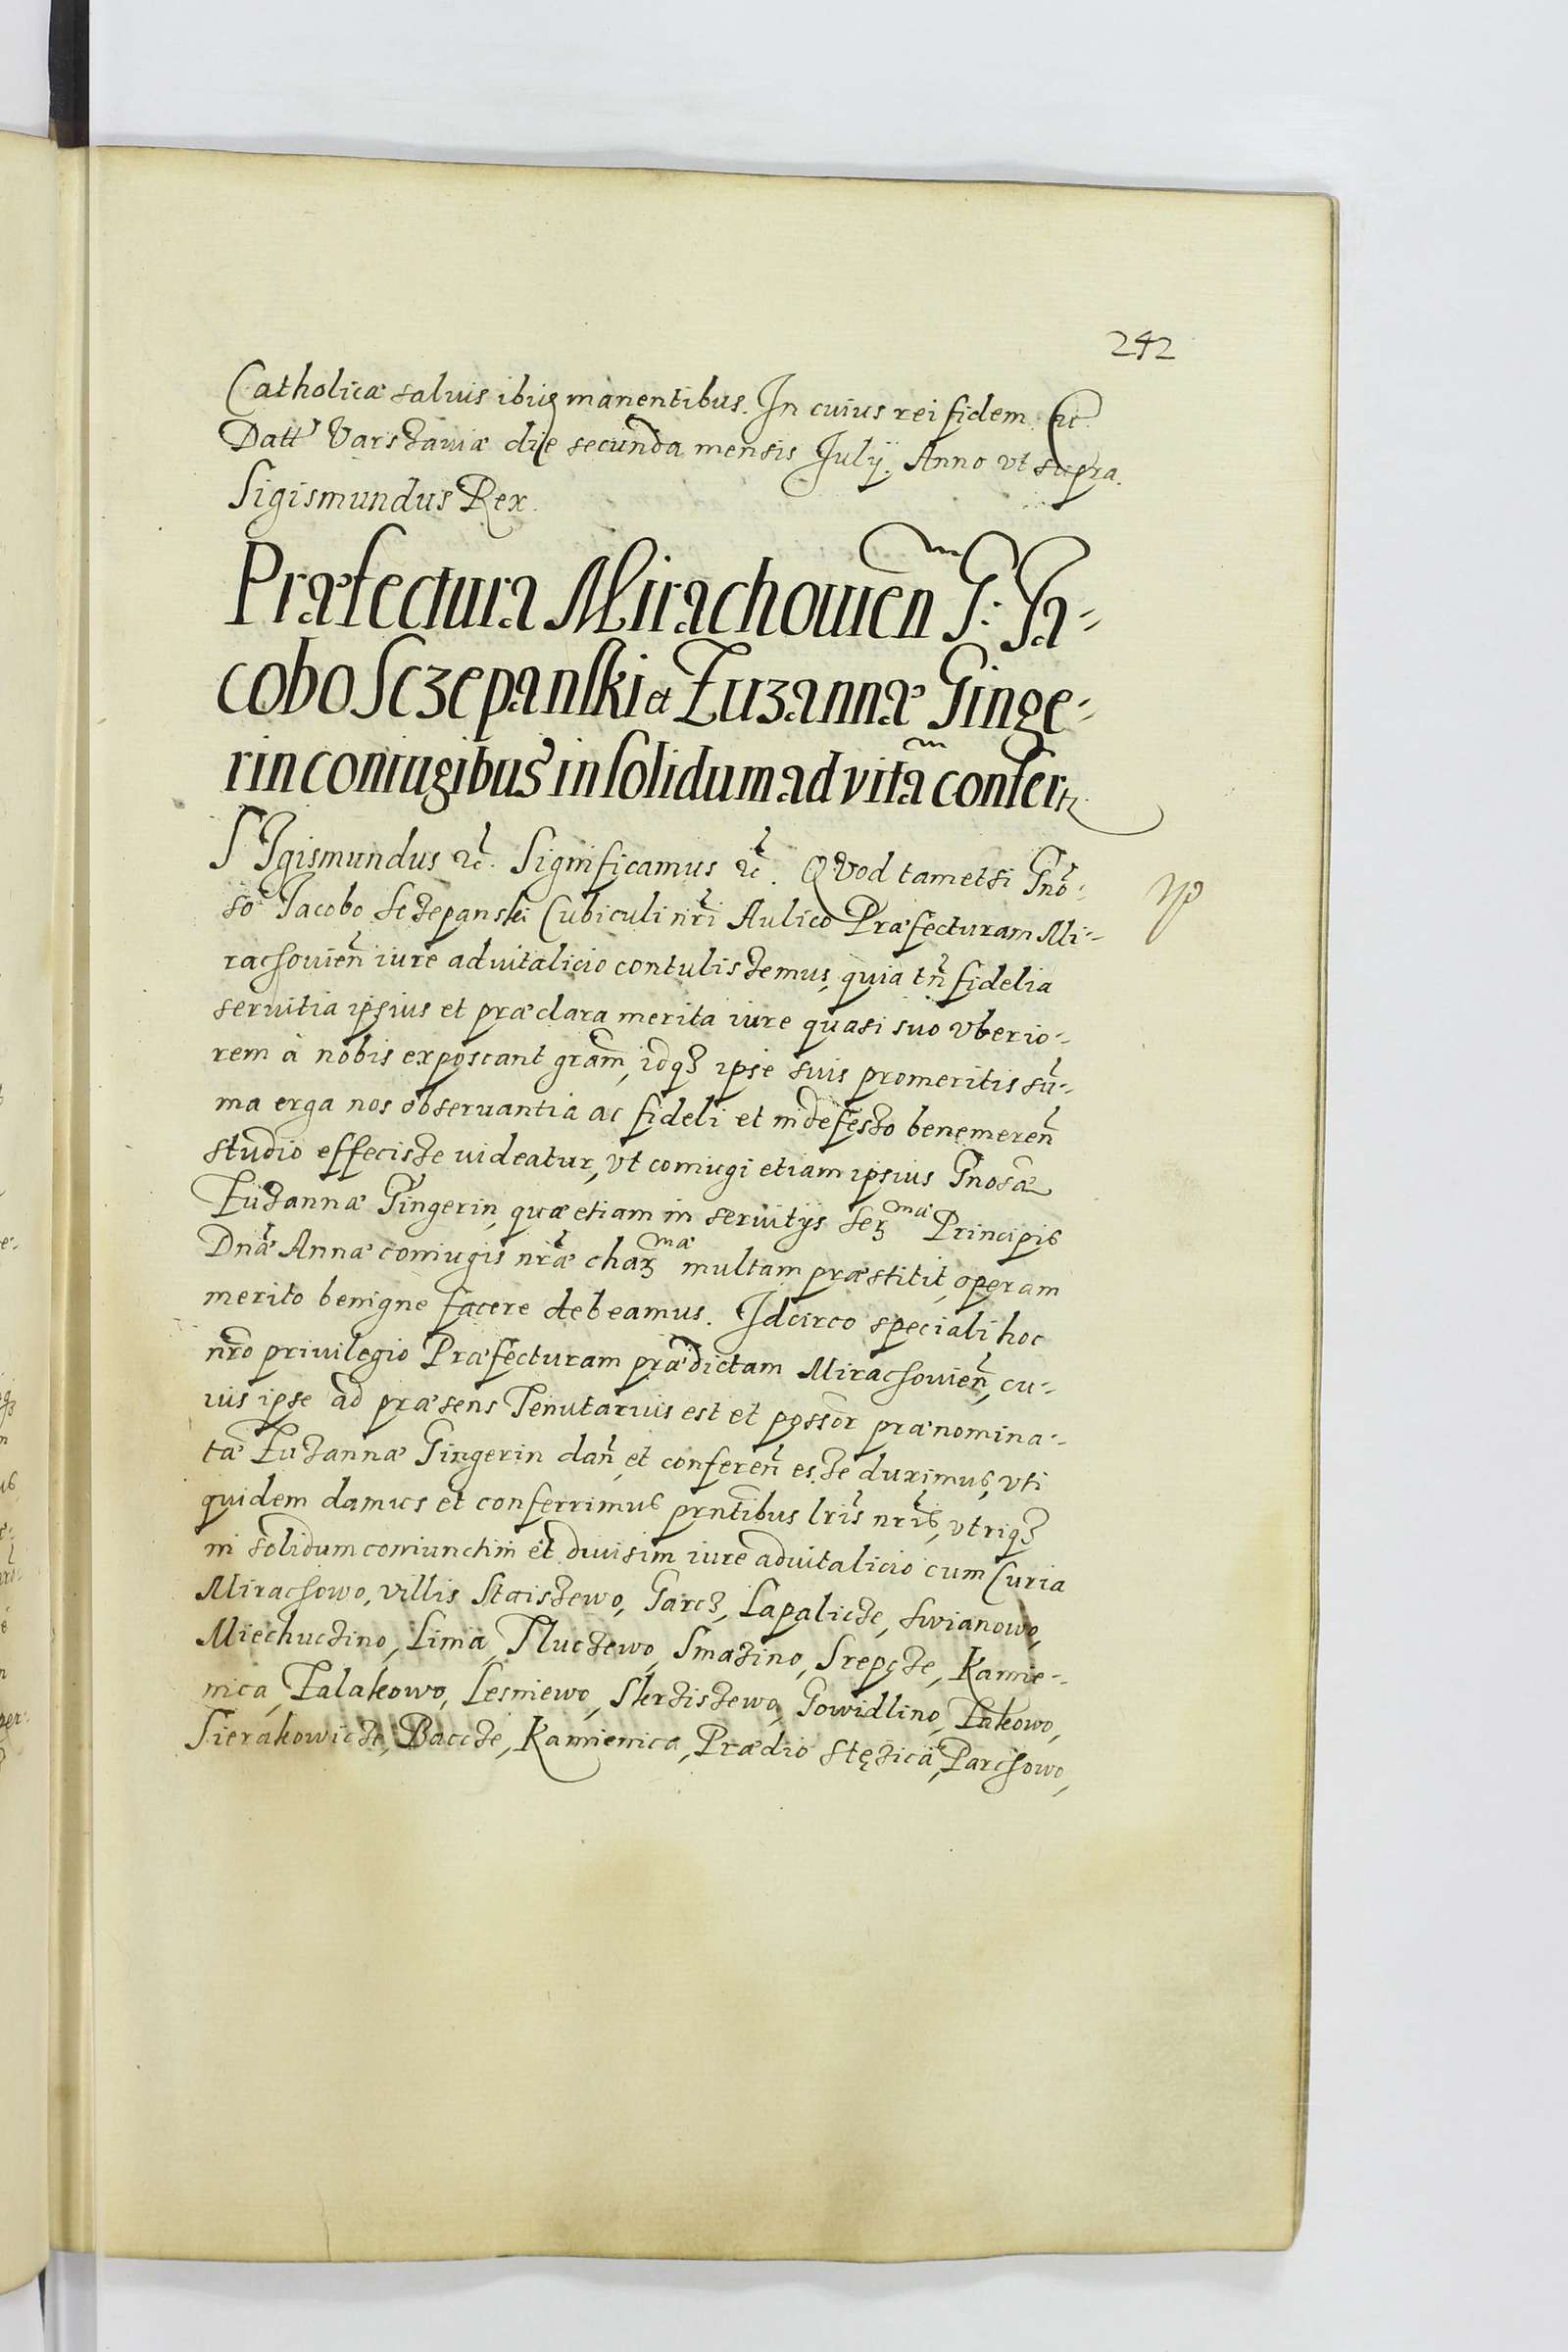 242
Catholicæ saluis ibiq manentibus. In cuius rei fidem etc.
Datt Varszauiæ die secunda mensis Julij. Anno vt supra.
Sigismundus Rex.
Præfectura Mirachowien̄ G. Ja-
cobo Sczepanski et Zuzannæ Ginge-
rin coniugibus in solidum ad vitā confert.
SIgismundus etc. Significamus etc. QVod tametsi Gn̄o-
so Jacobo Sczepanski Cubiculi nr̄i Aulico Præfecturam Mi-
rachowien̄ iure aduitalicio contulissemus, quia tn̄ fidelia
seruitia ipsius et præclara merita iure quasi suo vberio-
rem à nobis exposcant gr̄am, idq₃ ipse suis promeritis sū-
ma erga nos obseruantia ac fideli et indefesso benemeren̄
studio effecisse uideatur, vt coniugi etiam ipsius Gn̄osæ
Zuzannæ Gingerin, quæ etiam in seruitijs Ser^mæ Principis
Dn̄æ Annæ coniugis nr̄æ char^mæ multam præstitit, operam
merito benigne facere debeamus. Idcirco speciali hoc
nr̄o priuilegio Præfecturam prædictam Mirachowien̄, cu-
ius ipse ad præsens Tenutarius est et possor̄ prænomina-
tæ Zuzannæ Gingerin dan̄, et conferen̄ esse duximus, vti
quidem damus et conferrimus prn̄tibus lr̄is nr̄is, vtriq₃
in solidum coniunctim et diuisim iure aduitalicio cum Curia
Mirachowo, villis Staiszewo, Garcz, Lapalicze, Swianowo,
Miechuczino, Linia, Tluczewo, Smazino, Srepcze, Kamie-
nica, Zalakowo, Lesniewo, Skrziszewo, Gowidlino, Zakowo,
Sierakowicze, Baccze, Kamienica, Prædio Stęzica, Parchowo,